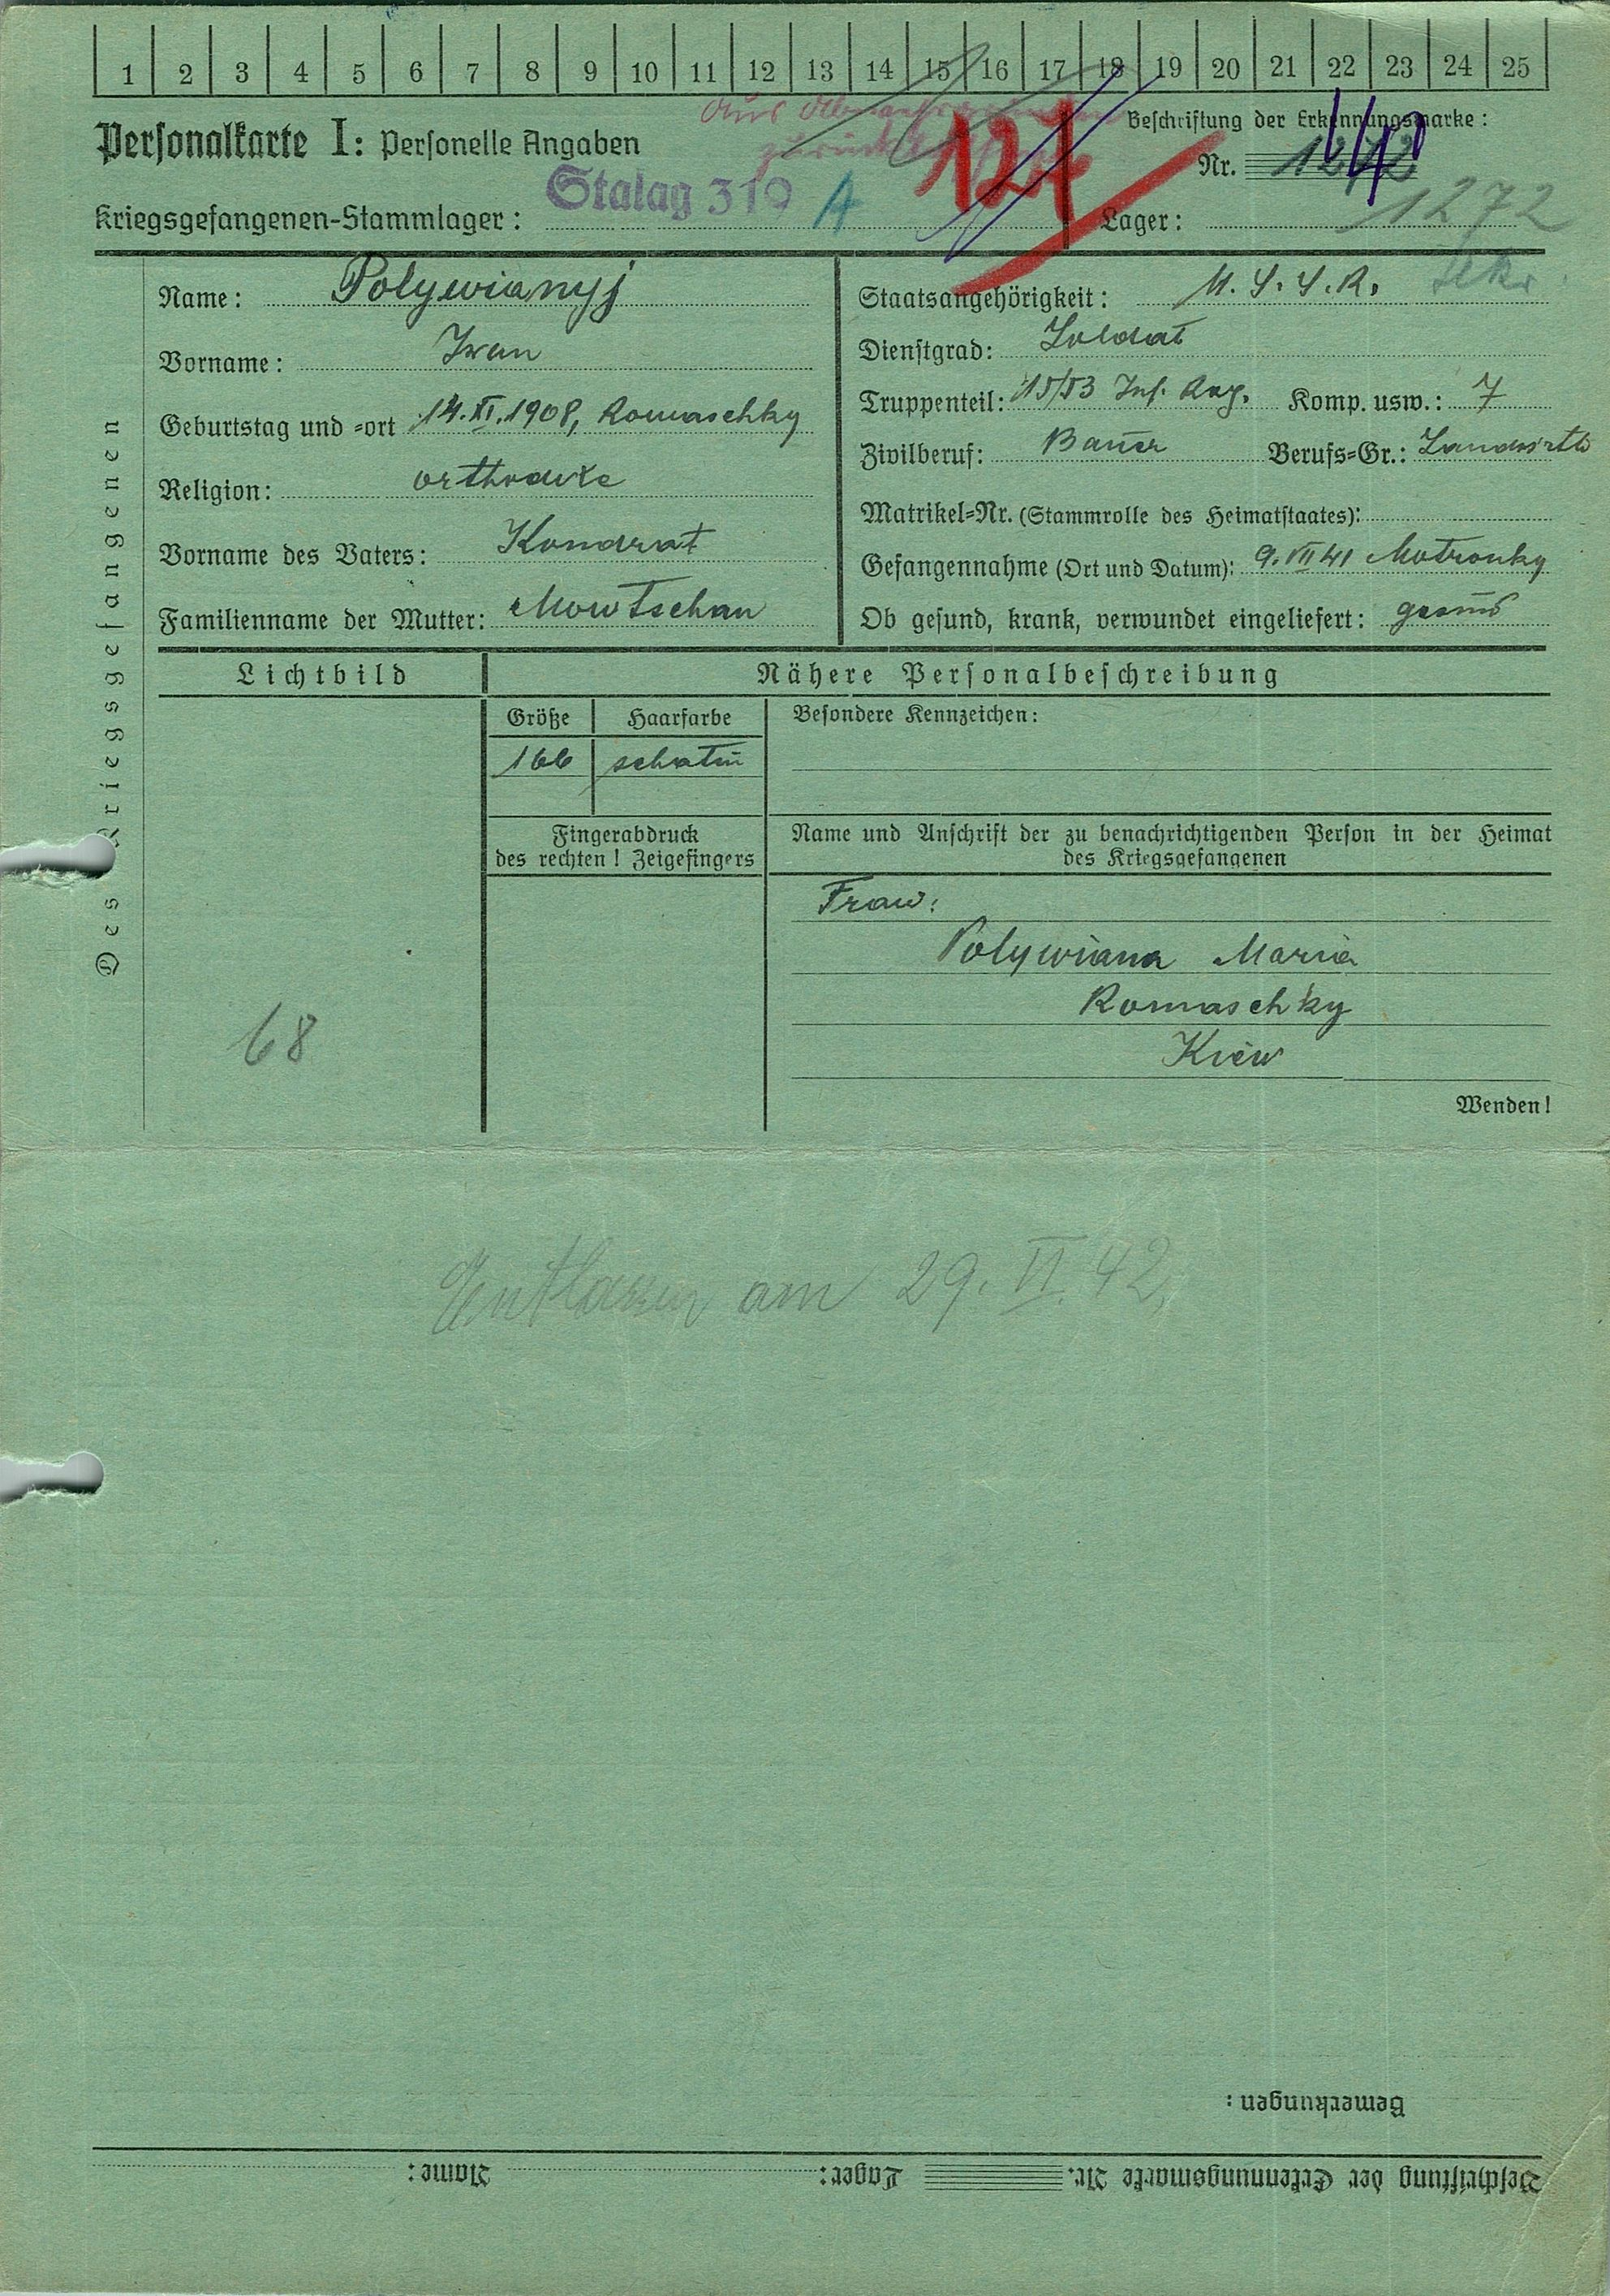 1 2 3 4 5 6 7 8 9 10 11 12 13 14 15 16 17 18 19 20 21 22 23 24 25
Aus
Personalkarte I: Personelle Angaben
Beschriftung der Erkennungsmarke:
Nr. 1272
Kriegsgefangenen-Stammlager: Stalag 310 A
Lager: 1272
Des Kriegsgefangenen
Name: Polywianyj
Vorname: Iwan
Geburtstag und -ort 14. XI. 1908, Romaschky
Religion: orthodoxe
Vorname des Vaters: Kondrat
Familienname der Mutter: Mowtschan
Staatsangehörigkeit: U. S. S. R.
Dienstgrad: Soldat
Truppenteil: Inf. Komp. usw.: 7
Zivilberuf: Bauer Berufs-Gr.: Landwirth
Matrikel-Nr. (Stammrolle des Heimatstaates):
Gefangennahme (Ort und Datum): 9. VII 41 Motronky
Ob gesund, krank, verwundet eingeliefert: gesund
Lichtbild
Nähere Personalbeschreibung
Größe Haarfarbe
166 schatin
Besondere Kennzeichen:
Fingerabdruck
des rechten! Zeigefingers
Name und Anschrift der zu benachrichtigenden Person in der Heimat
des Kriegsgefangenen
Frau:
Polywiana Maria
Romaschky
Kiew
68
Wenden!
Entlassen am 29. VI. 42.
Bemerkungen:
Beschriftung der Erkennungsmarke Nr. Lager: Name: